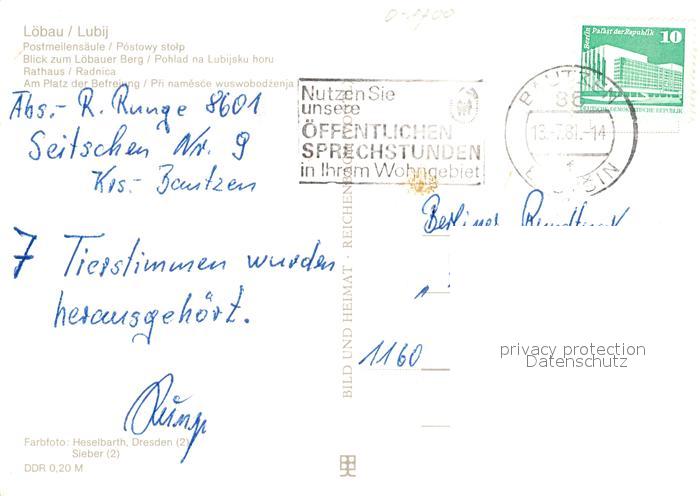 Löbau / Lubij
Postmeilensäule / Póstowy stołp
Blick zum Löbauer Berg / Pohlad na Lubijsku horu
Rathaus / Radnica
Am Platz der Befreiung / Při naměsće wuswobodźenja
Abs.- R. Runge 8601
Seitschen Nr. 9
Krs.- Bautzen
7 Tierstimmen wurden
herausgehört.
Runge
Farbfoto: Heselbarth, Dresden (2)
Sieber (2)
DDR 0,20 M
BILD UND HEIMAT · REICHENBACH
Nutzen Sie
unsere
ÖFFENTLICHEN
SPRECHSTUNDEN
in Ihrem Wohngebiet
BAUTZEN
86
13.-7.81.-14
BUDYŠIN
Berlin Palast der Republik
10
DEUTSCHE DEMOKRATISCHE REPUBLIK
Berliner Rundfunk
1160
privacy protection
Datenschutz